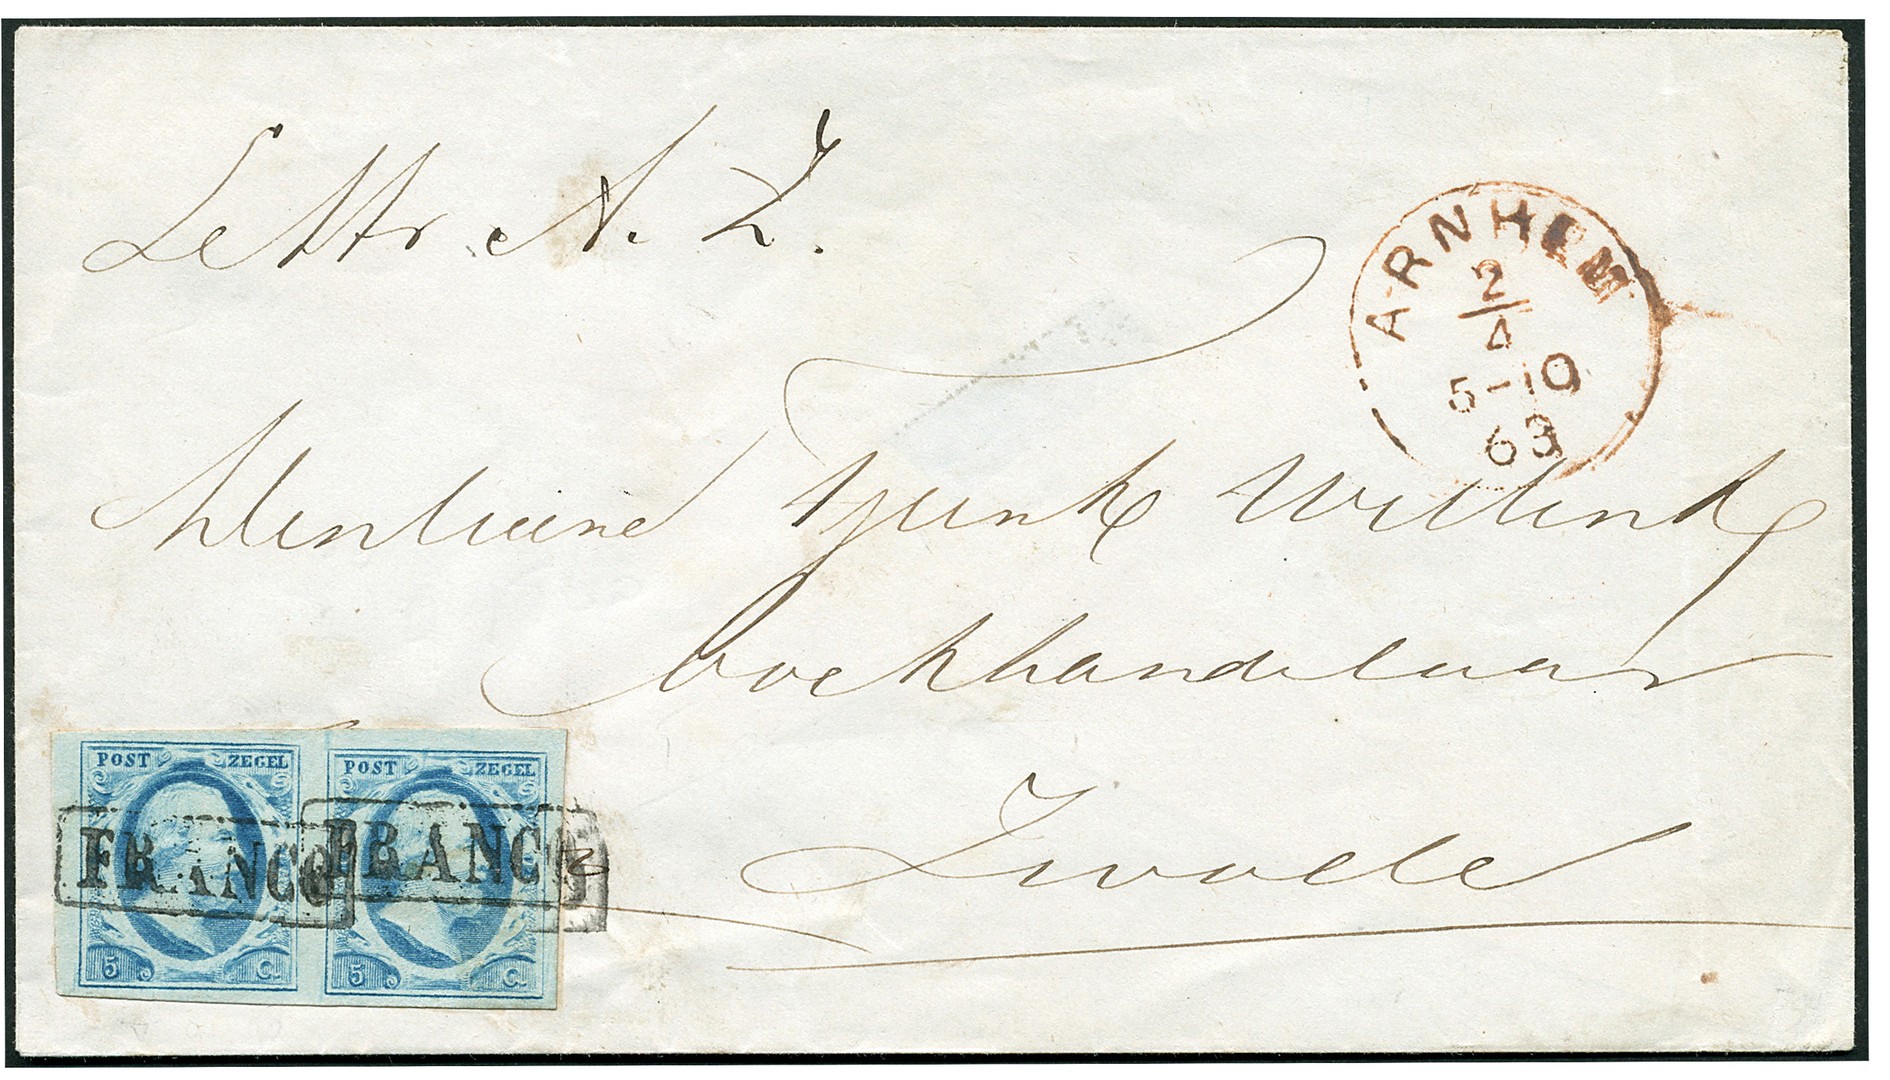 Letter A. Z.
ARNHEM
2/4
5-10
63
Tjeenk Willink
boekhandelaar
Zwolle
POST ZEGEL POST ZEGEL
FRANCO FRANCO
5 C. 5 C.